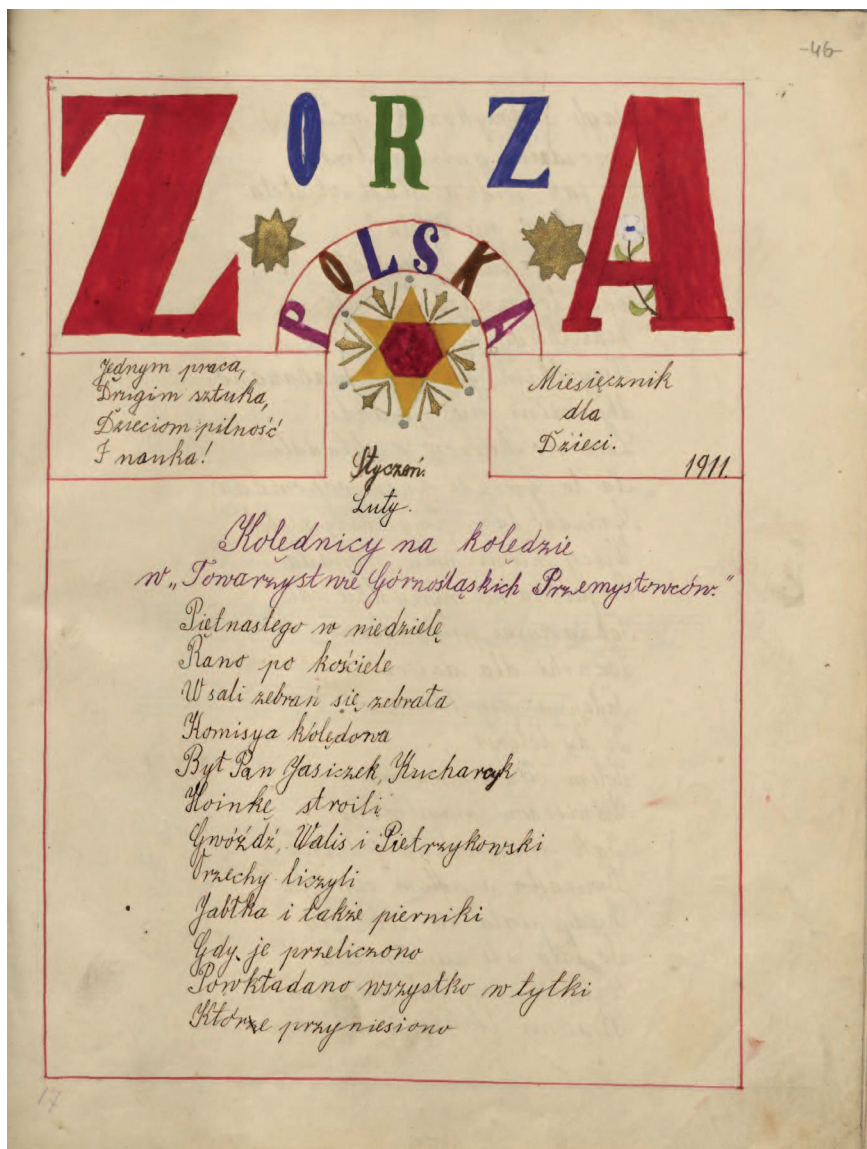 -46-
ZORZA
POLSKA
Jednym praca,
Drugim sztuka,
Dzieciom pilność
I nauka!
Miesięcznik
dla
Dzieci.
1911.
Styczeń.
Luty.
Kolędnicy na kolędzie
w „Towarzystwie Górnośląskich Przemysłowców."
Piętnastego w niedzielę
Rano po kościele
W sali zebrań się zebrała
Komisya kolędowa
Był Pan Jasiczek, Kucharczyk
Hoinkę stroili
Gwóźdź, Walis i Pietrzykowski
Orzechy liczyli
Jabłka i także pierniki
Gdy je przeliczono
Powkładano wszystko w tytki
Które przyniesiono
17